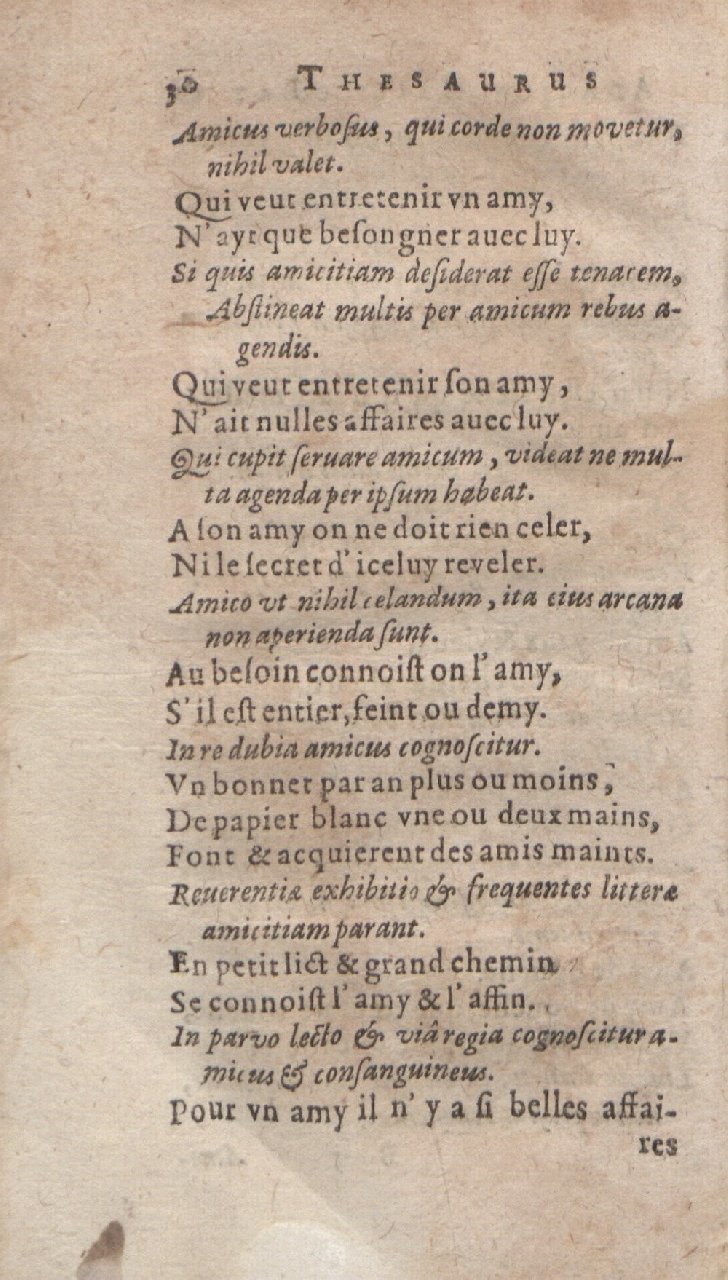 30 THESAURUS
Amicus verboſus, qui corde non movetur,
nihil valet.
Qui veut entretenir vn amy,
N'ayt que beſongner auec luy.
Si quis amicitiam deſiderat eſſe tenacem,
Abſtineat multis per amicum rebus a-
gendis.
Qui veut entretenir ſon amy,
N'ait nulles affaires auec luy.
Qui cupit ſeruare amicum, videat ne mul-
ta agenda per ipſum habeat.
A ſon amy on ne doit rien celer,
Ni le ſecret d'iceluy reveler.
Amico vt nihil celandum, ita eius arcana
non aperienda ſunt.
Au beſoin connoiſt on l'amy,
S'il eſt entier, feint ou demy.
In re dubia amicus cognoſcitur.
Vn bonnet par an plus ou moins,
De papier blanc vne ou deux mains,
Font & acquierent des amis maints.
Reuerentiæ exhibitio & frequentes litteræ
amicitiam parant.
En petit lict & grand chemin
Se connoiſt l'amy & l'affin.
In parvo lecto & viâ regia cognoſcitur a-
micus & conſanguineus.
Pour vn amy il n'y a ſi belles affai-
res